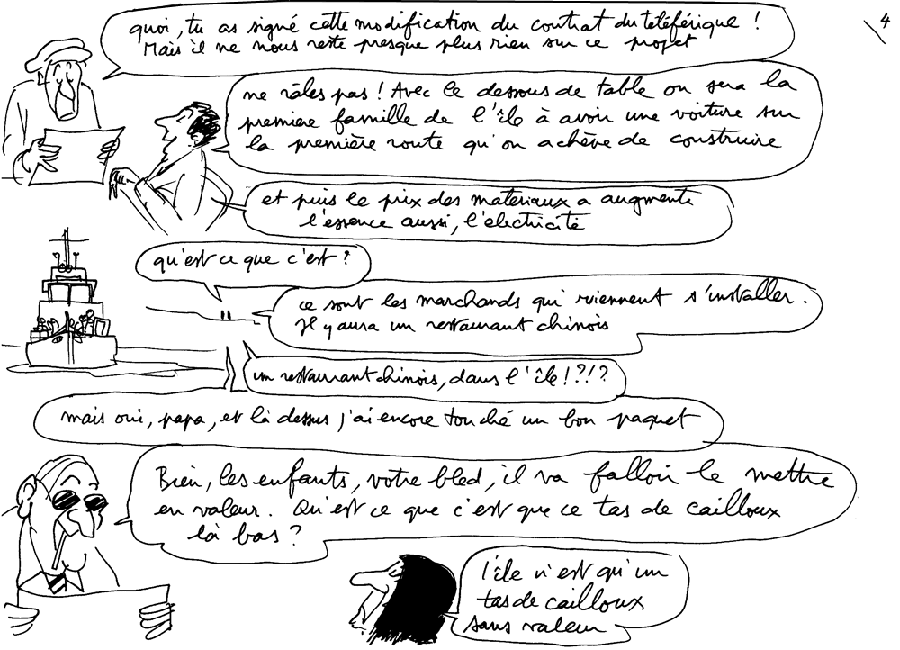 4
quoi, tu as signé cette modification du contrat du téléférique !
Mais il ne nous reste presque plus rien sur ce projet
ne râles pas ! Avec le dessous de table on sera la
premiere famille de l'île à avoir une voiture sur
la première route qu'on achève de construire
et puis le prix des materiaux a augmenté
l'essence aussi, l'électricité
qu'est ce que c'est ?
ce sont les marchands qui viennent s'installer.
Il y aura un restaurant chinois
un restaurant chinois, dans l'île !?!?
mais oui, papa, et là dessus j'ai encore touché un bon paquet
Bien, les enfants, votre bled, il va falloir le mettre
en valeur. Qu'est ce que c'est que ce tas de cailloux
là bas ?
l'île n'est qu'un
tas de cailloux
sans valeur